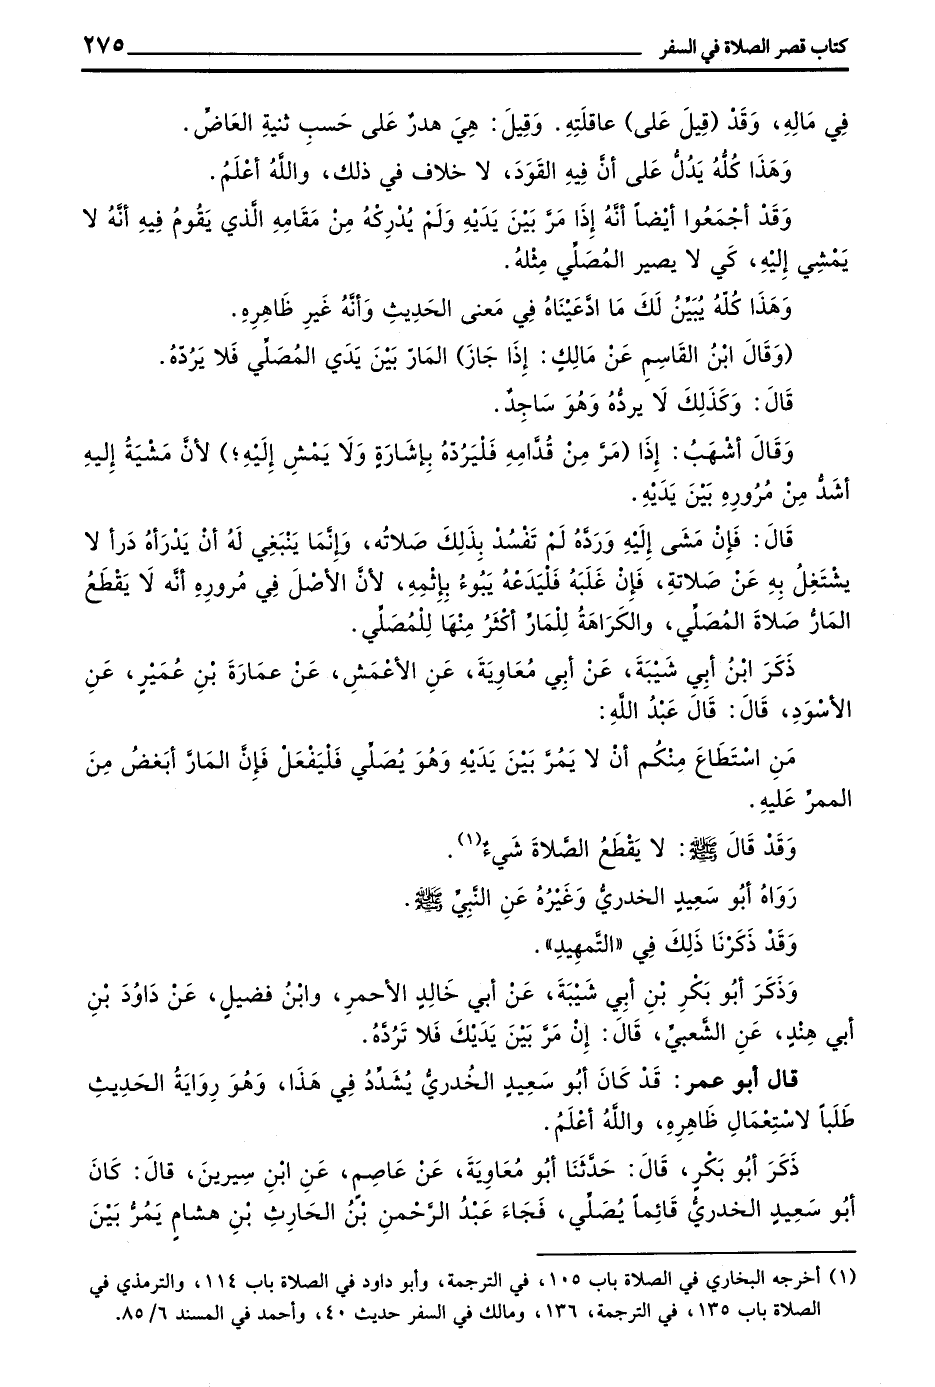 كتاب قصر الصلاة في السفر ٢٧٥
فِي مَالِهِ، وَقَدْ (قِيلَ عَلى) عاقلَتِهِ. وَقِيلَ: هِيَ هدرٌ عَلى حَسبِ ثنيةِ العَاضِّ.
وَهَذَا كُلُّهُ يَدُلُّ عَلى أنَّ فِيهِ القَوَدَ، لا خلاف في ذلك، واللَّهُ أعْلَمُ.
وَقَدْ أجْمَعُوا أيْضاً أنَّهُ إذَا مَرَّ بَيْنَ يَدَيْهِ وَلَمْ يُدْرِكْهُ مِنْ مَقَامِهِ الَّذي يَقُومُ فِيهِ أنَّهُ لا
يَمْشِي إليْهِ، كَي لا يصير المُصَلِّي مِثْلهُ.
وَهَذَا كلّهُ يُبَيِّنُ لَكَ مَا ادَّعَيْنَاهُ فِي مَعنى الحَدِيثِ وَأنَّهُ غَيرِ ظَاهِرِهِ.
(وَقَالَ ابْنُ القَاسِمِ عَنْ مَالِكٍ: إذَا جَازَ) المَارّ بَيْنَ يَدَي المُصَلِّي فَلا يَرُدّهُ.
قَالَ: وَكَذَلِكَ لَا يردُّهُ وَهُوَ سَاجِدٌ.
وَقَالَ أشْهَبُ: إذَا (مَرَّ مِنْ قُدَّامِهِ فَلْيَرُدّهُ بِإشَارَةٍ وَلَا يَمْشِ إلَيْهِ؛) لأنَّ مَشْيَهُ إليهِ
أشَدُّ مِنْ مُرُورِهِ بَيْنَ يَدَيْهِ.
قَالَ: فَإنْ مَشَى إلَيْهِ وَرَدَّهُ لَمْ تَفْسُدْ بِذَلِكَ صَلاتُه، وَإنَّما يَنْبَغِي لَهُ أنْ يَدْرَأهُ دَرأ لا
يشْتَغِلُ بِهِ عَنْ صَلاتةِ، فَإنْ غَلَبَهُ فَلْيَدَعْهُ يَبُوءُ بِإثْمِهِ، لأنَّ الأصْلَ فِي مُرورِهِ أنَّه لَا يَقْطَعُ
المَارُّ صَلاةَ المُصَلِّي، والكَرَاهَةُ لِلْمَارِّ أكْثَرُ مِنْهَا لِلْمُصَلِّي.
ذَكَرَ ابْنُ أبِي شَيْبَةَ، عَنْ أبي مُعَاوِيَةَ، عَنِ الأعْمَشِ، عَنْ عمارَةَ بْنِ عُمَيْرٍ، عَنِ
الأسْوَدِ، قَالَ: قَالَ عَبْدُ اللَّهِ:
مَنِ اسْتَطَاعَ مِنْكُم أنْ لا يَمُرَّ بَيْنَ يَدَيْهِ وَهُوَ يُصَلِّي فَلْيَفْعَلْ فَإنَّ المَارَّ أبَغضُ مِنَ
الممرِّ عَليهِ.
وَقَدْ قَالَ ﷺ: لا يَقْطَعُ الصَّلاةَ شَيءٌ(١).
رَوَاهُ أبُو سَعِيدٍ الخدريُّ وَغَيْرُهُ عَنِ النَّبِيِّ ﷺ.
وَقَدْ ذَكَرْنَا ذَلِكَ فِي «التَّمهِيدِ».
وَذَكَرَ أبُو بَكْرِ بْنِ أبِي شَيْبَةَ، عَنْ أبي خَالِدٍ الأحمرِ، وابْنُ فضيلٍ، عَنْ دَاوُدَ بْنِ
أبي هِنْدٍ، عَنِ الشَّعبيِّ، قَالَ: إنْ مَرَّ بَيْنَ يَدَيْكَ فَلا تَرُدَّهُ.
قال أبو عمر: قَدْ كَانَ أبُو سَعِيدٍ الخُدريُّ يُشَدِّدُ فِي هَذَا، وَهُوَ رِوَايَةُ الحَدِيثِ
طَلَباً لاسْتِعْمَالِ ظَاهِرِهِ، واللَّهُ أعْلَمُ.
ذَكَرَ أبُو بَكْرٍ، قَالَ: حَدَّثَنَا أبُو مُعَاوِيَةَ، عَنْ عَاصِمٍ، عَنِ ابْنِ سِيرينَ، قالَ: كَانَ
أبُو سَعِيدٍ الخدريُّ قَائِماً يُصَلِّي، فَجَاءَ عَبْدُ الرَّحْمنِ بْنُ الحَارِثِ بْنِ هشامٍ يَمُرُّ بَيْنَ
(١) أخرجه البخاري في الصلاة باب ١٠٥، في الترجمة، وأبو داود في الصلاة باب ١١٤، والترمذي في
الصلاة باب ١٣٥، في الترجمة، ١٣٦، ومالك في السفر حديث ٤٠، وأحمد في المسند ٦/ ٨٥.